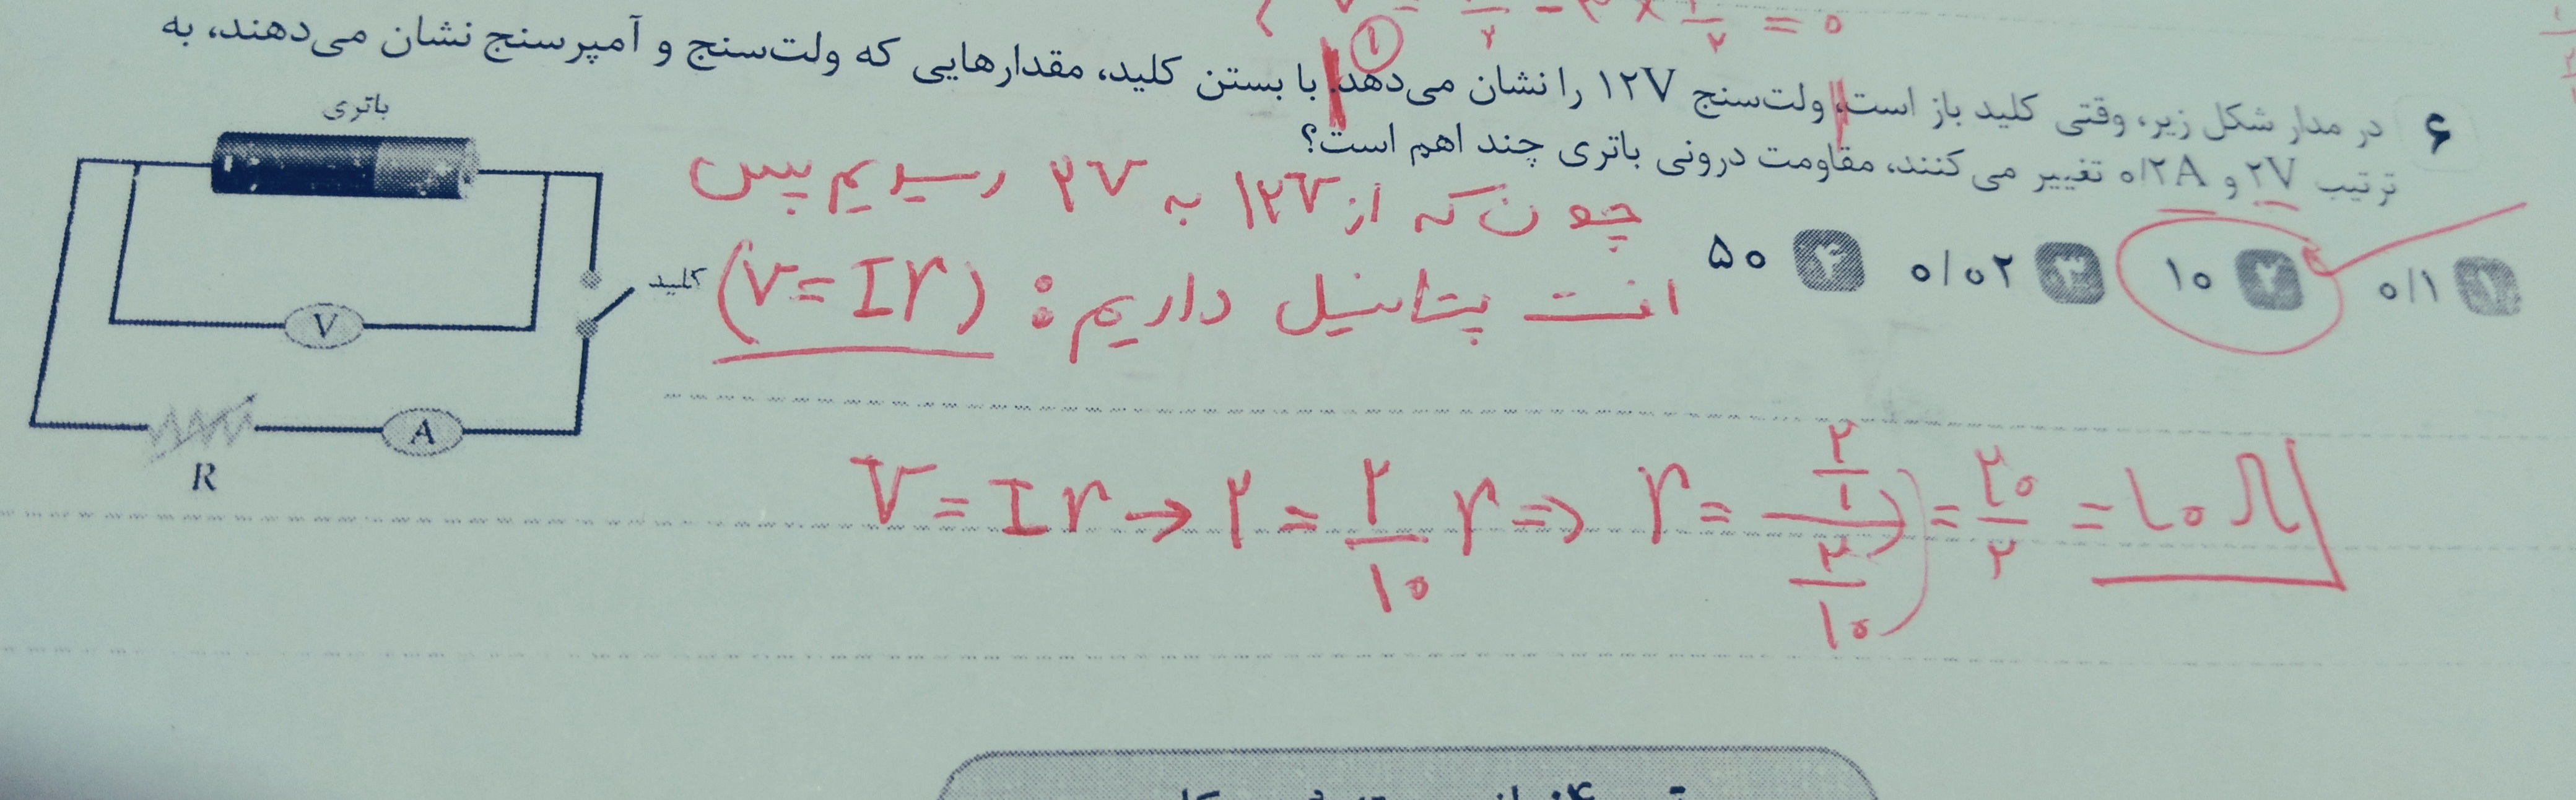 = ۰
۶ در مدار شکل زیر، وقتی کلید باز است، ولت‌سنج ۱۲V را نشان می‌دهد. با بستن کلید، مقدارهایی که ولت‌سنج و آمپرسنج نشان می‌دهند، به
۱
ترتیب ۲V و ۰/۲A تغییر می‌کنند، مقاومت درونی باتری چند اهم است؟
۱ ۰/۱ ۲ ۱۰ ۳ ۰/۰۲ ۴ ۵۰
باتری
کلید
V
A
R
چونکه از ۱۲V به ۲V رسیدیم پس
افت پتانسیل داریم: (V=Ir)
V = Ir → ۲ = ۲/۱۰ r ⇒ r = (۲/۱)/(۲/۱۰) = ۲۰/۲ = ۱۰ Ω